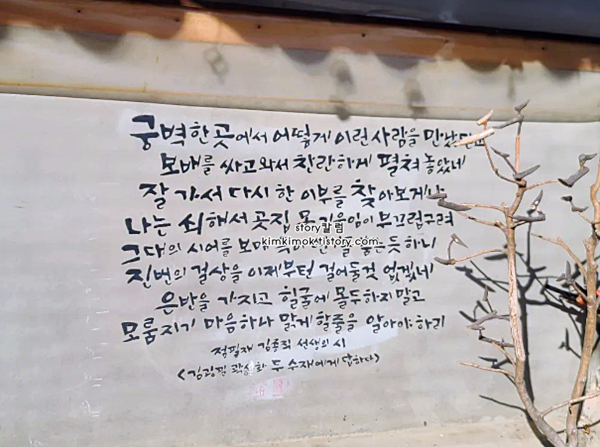 궁벽한 곳에서 어떻게 이런 사람을 만났
보배를 싸고와서 찬란하게 펼쳐 놓았네
잘 가서 다시 한 이부를 찾아보게나
나는 쇠해서 곳집 못 기울임이 부끄럽구려
story칼럼
kimkimok.tistory.com
그대의 시어를 보매 하니
진번의 걸상을 이제부터 걸어둘것 없겠네
은반을 가지고 힐굴에 몰두하지말고
모름지기 마음하나 맑게 할줄을 알아야 하리
점필재 김종직 선생의 시
<김굉필 곽승화 두 수재에게 답하다>